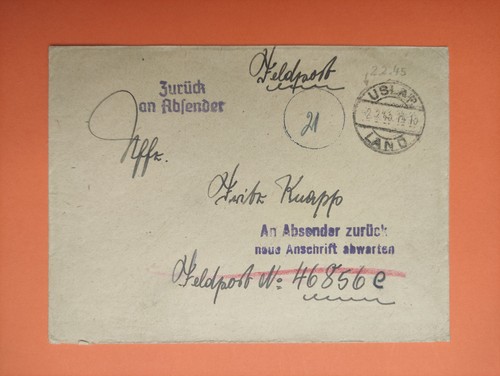 Feldpost
2.2.45
Zurück
an Absender
USLAR
LAND
21
Uffz.
Fritz Knapp
An Absender zurück
neue Anschrift abwarten
Feldpost No: 46856 C